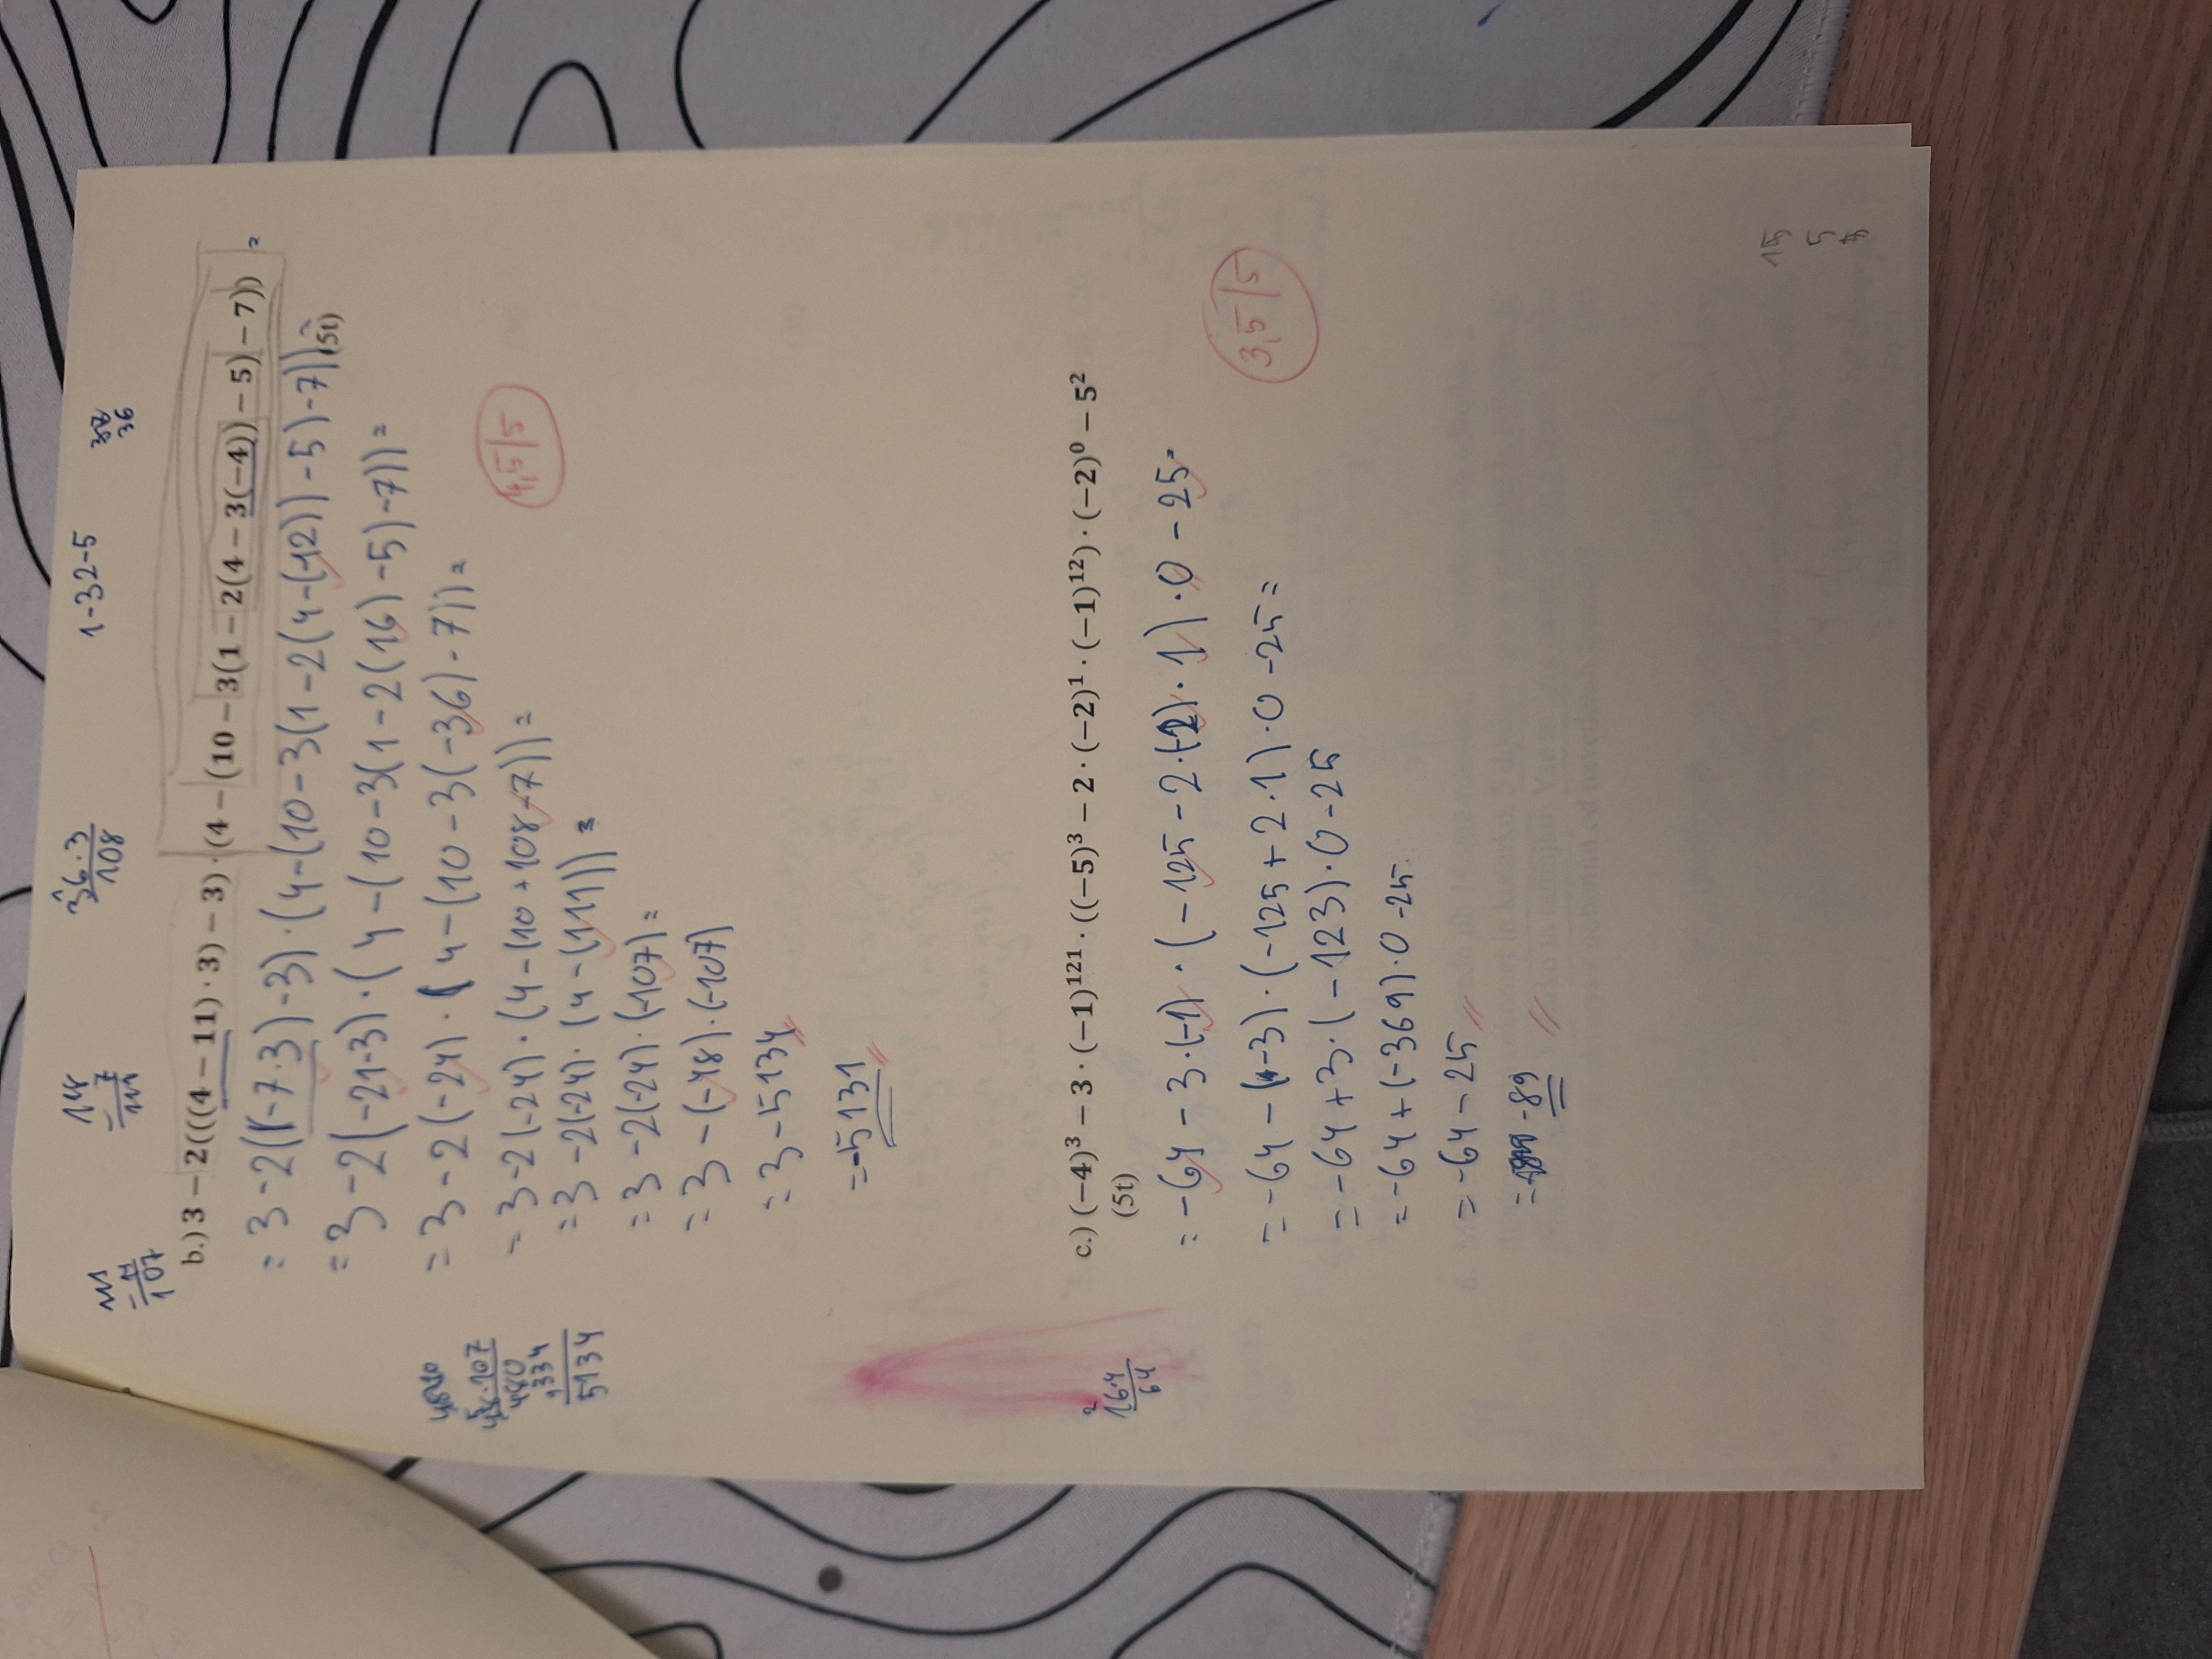 118
- 7
111
36·3
108
1-32-5
37
36
111
- 4
107
b.) 3 − 2(((4 − 11) · 3) − 3) · (4 − (10 − 3(1 − 2(4 − 3(−4)) − 5) − 7)) =
= 3 -2((-7·3)-3)·(4-(10-3(1-2(4-(-12))-5)-7))=
(5t)
= 3-2(-21-3)·(4-(10-3(1-2(16)-5)-7))=
= 3-2(-24)·(4-(10-3(-36)-7))=
= 3-2(-24)·(4-(10+108-7))=
4,5/5
= 3-2(-24)·(4-(111))=
= 3-2(-24)·(-107)=
= 3-(-48)·(-107)
= 3-5134
= -5131
48·107
480
334
5134
c.) (−4)³ − 3 · (−1)¹²¹ · ((−5)³ − 2 · (−2)¹ · (−1)¹²) · (−2)⁰ − 5²
(5t)
16·4
64
= -64-3·(-1)·(-125-2·(-2)·1)·0-25=
= -64-(-3)·(-125+2·1)·0-25=
3,5/5
= -64+3·(-123)·0-25
= -64+(-369)·0-25
= -64-25
= -89
15
5